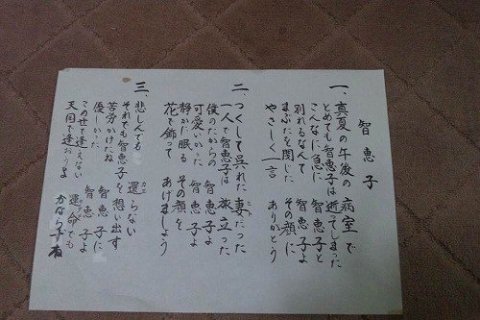 智恵子
一、真夏の午後の病室で
とめても智恵子は逝てしまった
こんなに急に智恵子と
別れるなんてその顔に
まぶたを閉じた
やさしく一言ありがとう
二、つくして呉れた妻だった
一人で智恵子は旅立った
僕のたからの智恵子よ
可愛いかった智恵子よ
静かに眠るその顔を
花で飾ってあげましょう
三、悲しんでも還らない
それでも智恵子を想い出す
苦労かけたね智恵子に
優しかった智恵子よ
この世で逢えない運命でも
天国で逢おうよかならずね